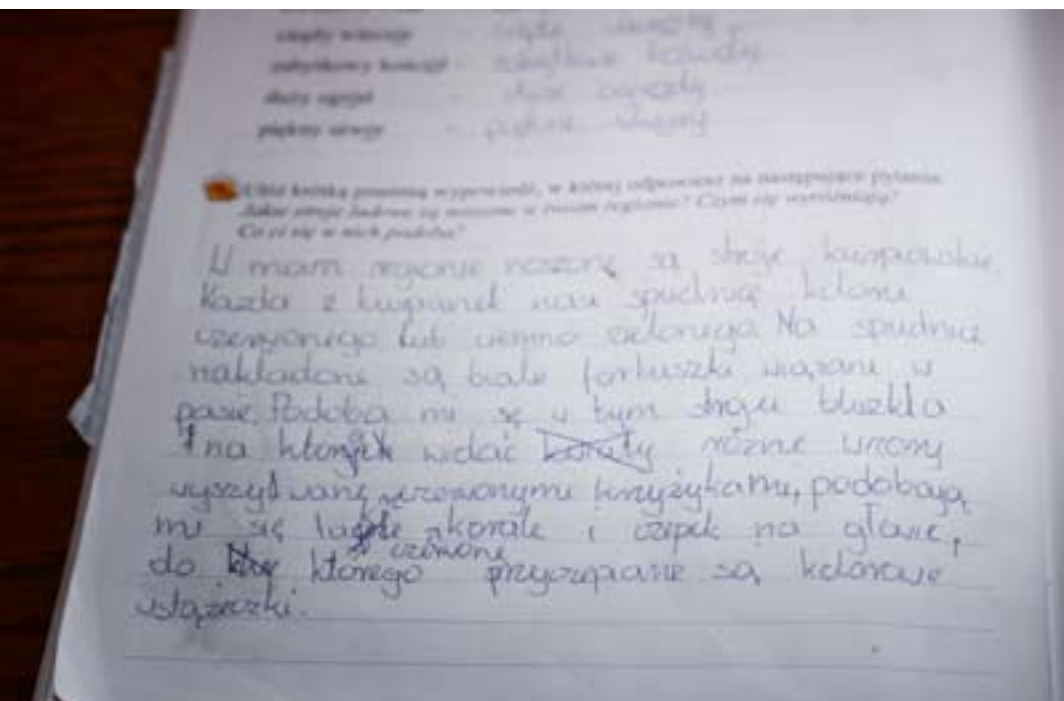 zabytkowy kościół - zabytkowe kościoły
duży ogród - duże ogrody
piękny - piękne
Ułóż krótką pisemną wypowiedź, w której odpowiesz na następujące pytania.
Jakie stroje ludowe są noszone w twoim regionie? Czym się wyróżniają?
Co ci się w nich podoba?
W moim regionie noszone są stroje kurpiowskie.
Każda z kurpianek nosi spudnicę koloru
czerwonego lub ciemno zielonego. Na spudnicę
nakładane są białe fartuszki wiązane w
pasie. Podoba mi się w tym stroju bluzka
na której widać kwiaty różne wzory
wyszydwane czerwonymi krzyżykami, podobają
mi się także korale i czepek na głowie,
czerwone
do którego przyczepiane są kolorowe
wstążeczki.